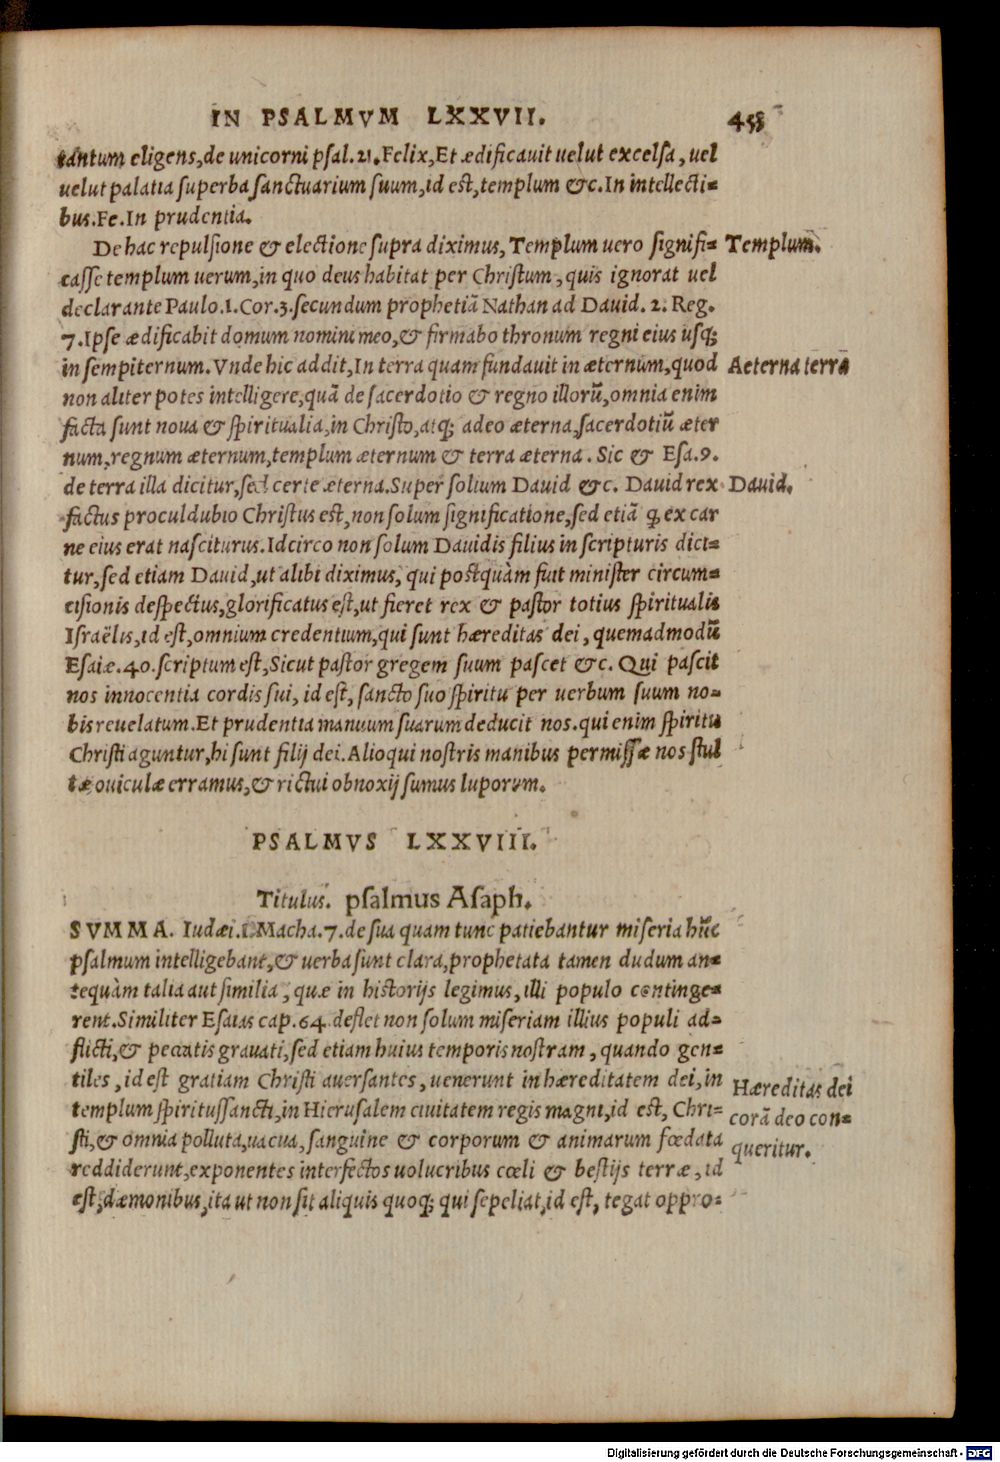 IN PSALMVM LXXVII. 453
tantum eligens, de unicorni psal. 21. Felix, Et ædificauit uelut excelsa, uel
uelut palatia superba sanctuarium suum, id est, templum &c. In intellecti-
bus. Fe. In prudentia.
De hac repulsione & electione supra diximus, Templum uero signifi- Templum.
casse templum uerum, in quo deus habitat per Christum, quis ignorat uel
declarante Paulo. 1. Cor. 3. secundum prophetiā Nathan ad Dauid. 2. Reg.
7. Ipse ædificabit domum nomini meo, & firmabo thronum regni eius usq;
in sempiternum. Vnde hic addit, In terra quam fundauit in æternum, quod Aeterna terra
non aliter potes intelligere, quā de sacerdotio & regno illorū, omnia enim
facta sunt noua & spiritualia, in Christo, atq; adeo æterna, sacerdotiū æter
num, regnum æternum, templum æternum & terra æterna. Sic & Esa. 9.
de terra illa dicitur, sed certe æterna. Super solium Dauid &c. Dauid rex Dauid.
factus proculdubio Christus est, non solum significatione, sed etiā q; ex car
ne eius erat nasciturus. Idcirco non solum Dauidis filius in scripturis dici-
tur, sed etiam Dauid, ut alibi diximus, qui postquàm fuit minister circum-
cisionis despectus, glorificatus est, ut fieret rex & pastor totius spiritualis
Israëlis, id est, omnium credentium, qui sunt hæreditas dei, quemadmodū
Esaiæ. 40. scriptum est, Sicut pastor gregem suum pascet &c. Qui pascit
nos innocentia cordis sui, id est, sancto suo spiritu per uerbum suum no-
bis reuelatum. Et prudentia manuum suarum deducit nos. qui enim spiritu
Christi aguntur, hi sunt filij dei. Alioqui nostris manibus permissæ nos stul
tæ ouiculæ erramus, & rictui obnoxij sumus luporum.
PSALMVS LXXVIII.
Titulus. psalmus Asaph.
SVMMA. Iudæi. 1. Macha. 7. de sua quam tunc patiebantur miseria hūc
psalmum intelligebant, & uerba sunt clara, prophetata tamen dudum an-
tequàm talia aut similia, quæ in historijs legimus, illi populo continge-
rent. Similiter Esaias cap. 64. deflet non solum miseriam illius populi ad-
flicti, & peccatis grauati, sed etiam huius temporis nostram, quando gen-
tiles, id est gratiam Christi auersantes, uenerunt in hæreditatem dei, in Hæreditas dei
templum spiritussancti, in Hierusalem ciuitatem regis magni, id est, Chri- corā deo con-
sti, & omnia polluta, uacua, sanguine & corporum & animarum fœdata queritur.
reddiderunt, exponentes interfectos uolucribus cœli & bestijs terræ, id
est, dæmonibus, ita ut non sit aliquis quoq; qui sepeliat, id est, tegat oppro-
Digitalisierung gefördert durch die Deutsche Forschungsgemeinschaft - DFG